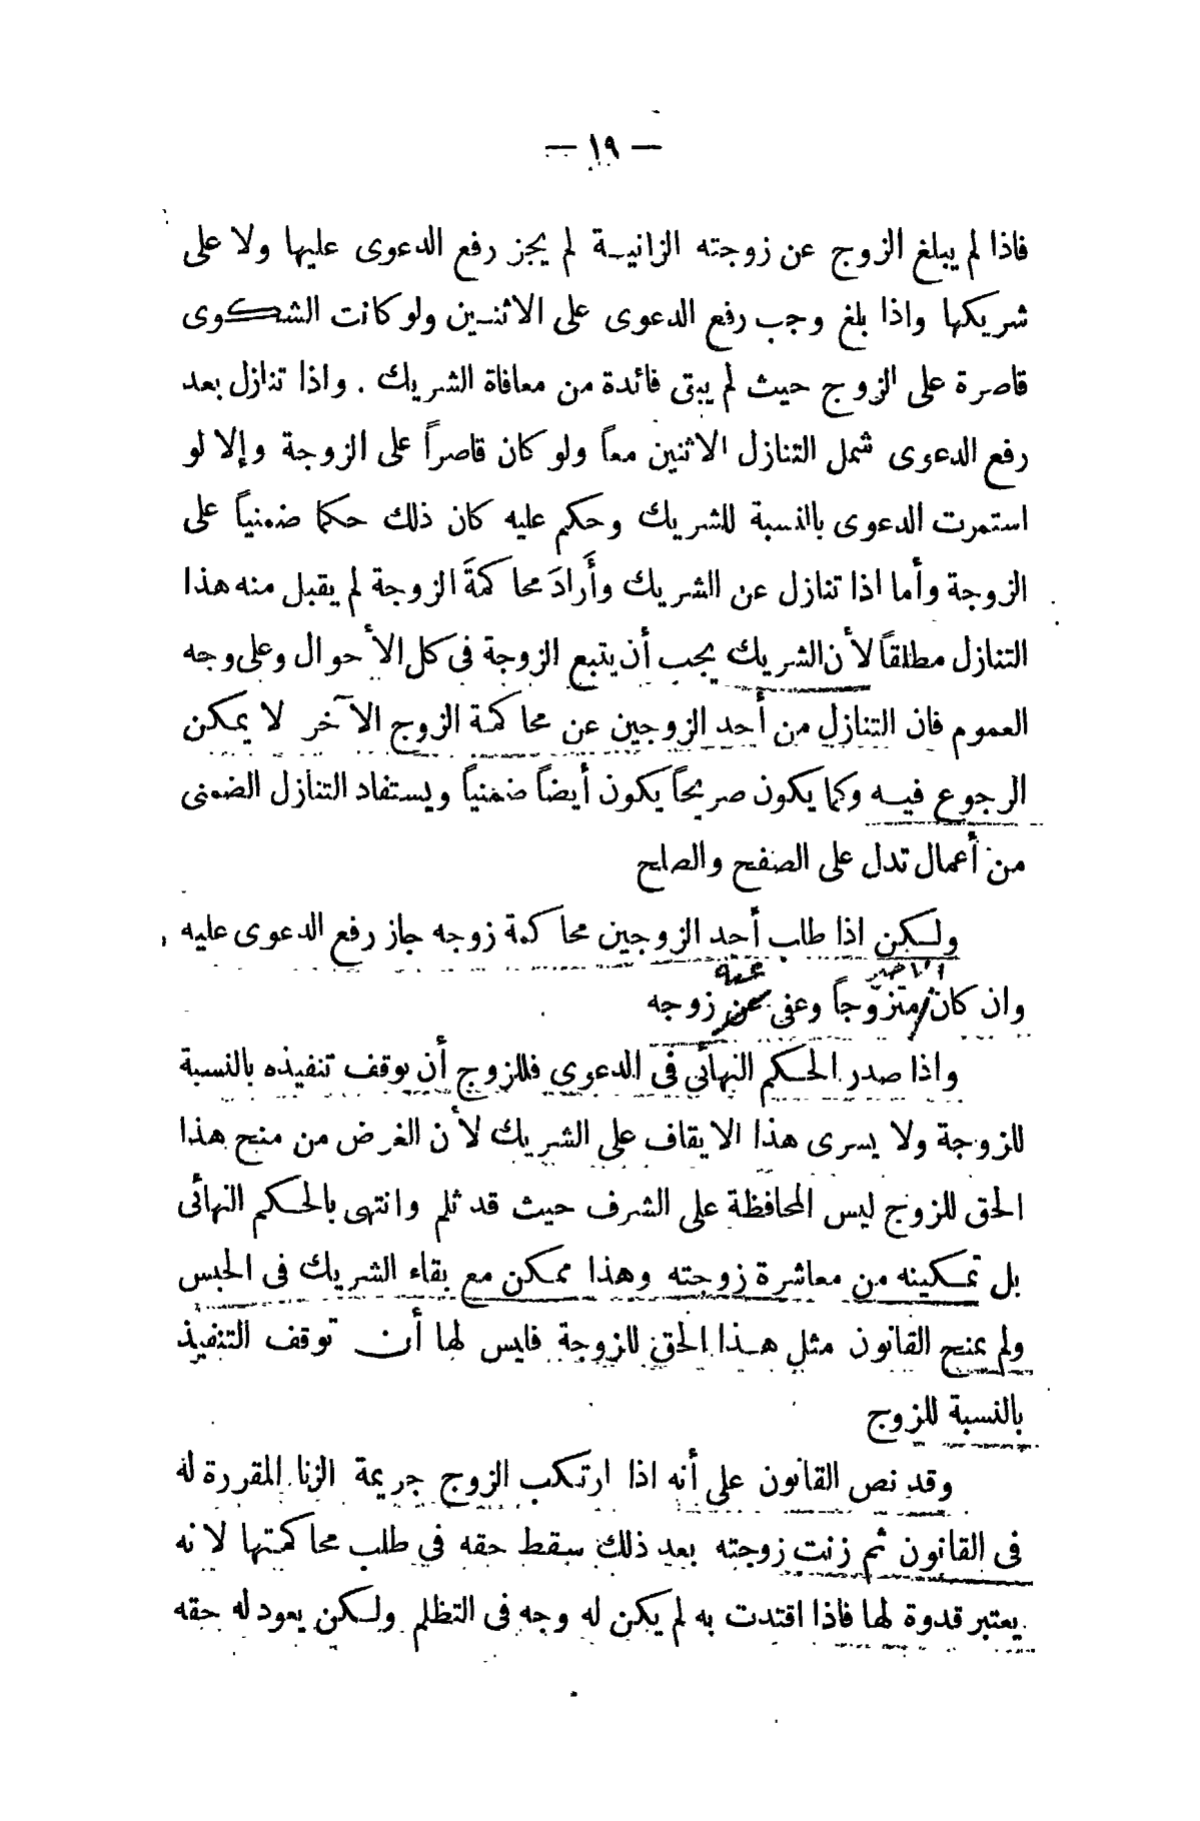 — ١٩ —
فاذا لم يبلغ الزوج عن زوجته الزانيـة لم يجز رفع الدعوى عليها ولا على
شريكها واذا بلغ وجب رفع الدعوى على الاثنـين ولو كانت الشكوى
قاصرة على الزوج حيث لم يبق فائدة من معافاة الشريك . واذا تنازل بعد
رفع الدعوى شمل التنازل الاثنين معاً ولو كان قاصراً على الزوجة وإلا لو
استمرت الدعوى بالنسبة للشريك وحكم عليه كان ذلك حكما ضمنياً على
الزوجة وأما اذا تنازل عن الشريك وأَرادَ محاكمةَ الزوجة لم يقبل منه هذا
التنازل مطلقاً لأن الشريك يجب أن يتبع الزوجة فى كل الأحوال وعلى وجه
العموم فان التنازل من أحد الزوجين عن محاكمة الزوج الآخر لا يمكن
الرجوع فيـه وكما يكون صريحاً يكون أيضاً ضمنياً ويستفاد التنازل الضمنى
من أعمال تدل على الصفح والصلح
ولـكن اذا طلب أحد الزوجين محاكمة زوجه جاز رفع الدعوى عليه
الاخير عنه
وان كان متزوّجاً وعفى عن زوجه
واذا صدر الحـكم النهائى فى الدعوى فللزوج أن يوقف تنفيذه بالنسبة
للزوجة ولا يسرى هذا الايقاف على الشريك لأن الغرض من منح هذا
الحق للزوج ليس المحافظة على الشرف حيث قد ثلم وانتهى بالحـكم النهائى
بل تمـكينه من معاشرة زوجته وهذا ممـكن مع بقاء الشريك فى الحبس
ولم يمنح القانون مثل هـذا الحق للزوجة فليس لها أن توقف التنفيذ
بالنسبة للزوج
وقد نص القانون على أنه اذا ارتـكب الزوج جريمة الزنا المقررة له
فى القانون ثم زنت زوجته بعد ذلك سقط حقه فى طلب محاكمتها لانه
يعتبر قدوة لها فاذا اقتدت به لم يكن له وجه فى التظلم ولـكن يعود له حقه